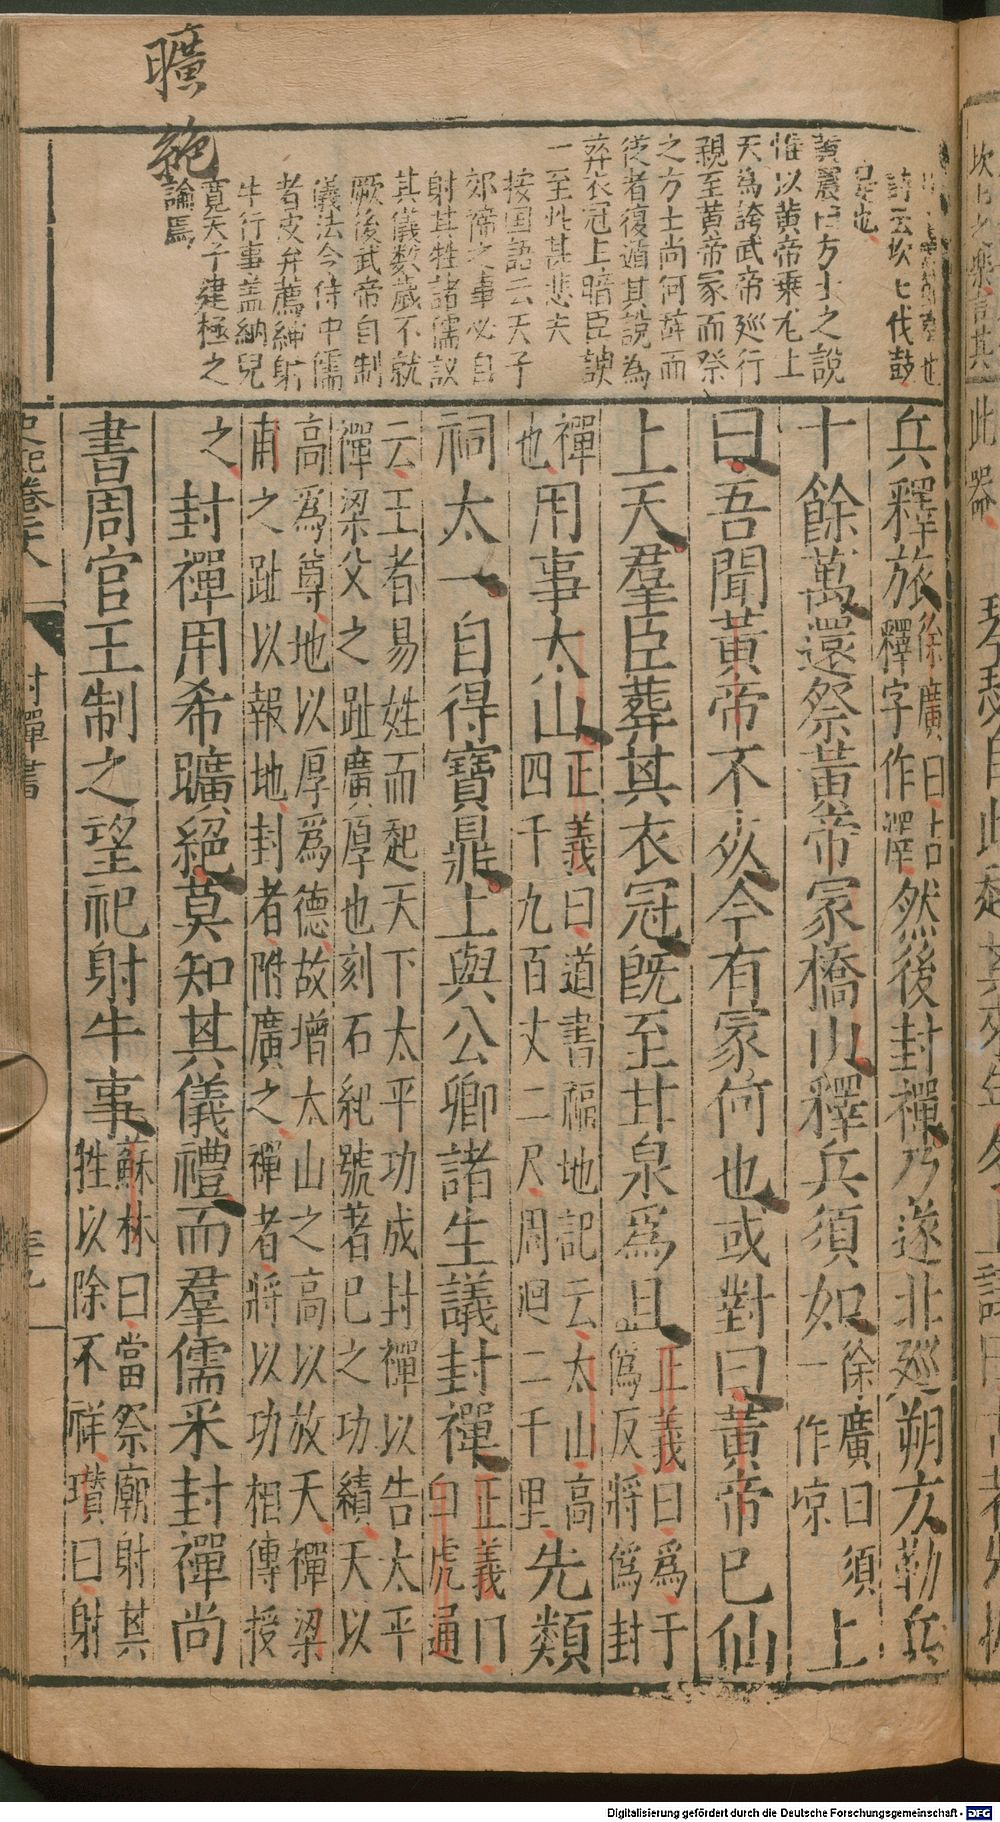 曠
絶
詩云坎七伐鼓
是也
惟以黄帝乗龙上
天為誇武帝廵行
親至黄帝冢而祭
之方士尚何辭而
從者復遁其說為
葬衣冠上暗臣諛
一至此甚悲夫
按国語云天子
郊禘之事必自
射其牲諸儒議
其儀数歳不就
厥後武帝自制
儀法令侍中儒
者皮弁薦紳射
牛行事盖納兒
寛天子建極之
論焉
兵釋旅徐廣曰古
釋字作澤然後封禪乃遂北廵朔方勒兵
十餘萬還祭黄帝冢橋山釋兵須如徐廣曰須
一作凉上
曰吾聞黄帝不死今有冢何也或對曰黄帝已仙
上天羣臣葬其衣冠既至甘泉爲且正義曰爲于
僞反將僞封
禪
也用事太山正義曰道書福地記云太山高
四千九百丈二尺周迴二千里先類
祠太一自得寶鼎上與公卿諸生議封禪正義曰
白虎通
云王者易姓而起天下太平功成封禪以告太平
禪梁父之趾廣厚也刻石紀號著已之功績天以
高爲尊地以厚爲德故增太山之高以放天禪梁
甫之趾以報地封者附廣之禪者將以功相傳授
之封禪用希曠絕莫知其儀禮而羣儒采封禪尚
書周官王制之望祀射牛事蘇林曰當祭廟射其
牲以除不祥瓉曰射
封禪書